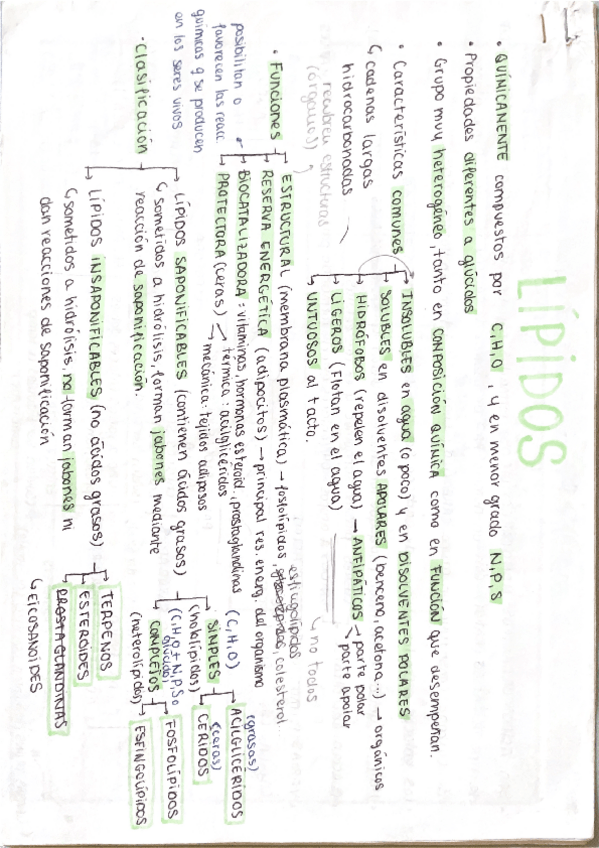 LÍPIDOS
• QUÍMICAMENTE compuestos por C,H,O, y en menor grado N,P,S
• Propiedades diferentes a glúcidos
• Grupo muy heterogéneo, tanto en COMPOSICIÓN QUÍMICA como en FUNCIÓN que desempeñan.
• Características comunes
↳ cadenas largas
hidrocarbonadas
INSOLUBLES en agua (o poco) y en DISOLVENTES POLARES
SOLUBLES en disolventes APOLARES (benceno, acetona...) → orgánicos
HIDRÓFOBOS (repelen el agua) → ANFIPÁTICOS
parte polar
parte apolar
LIGEROS (flotan en el agua)
↳ no todos
UNTUOSOS al tacto.
recubren estructuras
(órganos)
• Funciones
ESTRUCTURAL (membrana plasmática) → fosfolípidos, colesterol.
esfingolípidos
RESERVA ENERGÉTICA (adipocitos) → principal res. energ. del organismo
BIOCATALIZADORA: vitaminas, hormonas esteroid., prostaglandinas
PROTECTORA (ceras)
térmica: acilglicéridos
mecánica: tejidos adiposos
posibilitan o
favorecen las reacc
químicas q se producen
en los seres vivos
• Clasificación
LÍPIDOS SAPONIFICABLES (contienen ácidos grasos)
↳ sometidos a hidrólisis, forman jabones mediante
reacción de saponificación.
(C,H,O)
SIMPLES
(hololípidos)
(grasas)
ACILGLICÉRIDOS
CÉRIDOS
(ceras)
(C,H,O + N,P,S o
glúcido)
COMPLEJOS
(heterolípidos)
FOSFOLÍPIDOS
ESFINGOLÍPIDOS
LÍPIDOS INSAPONIFICABLES (no ácidos grasos)
↳ sometidos a hidrólisis, no forman jabones ni
dan reacciones de saponificación
TERPENOS
ESTEROIDES
PROSTAGLANDINAS
↳ EICOSANOIDES